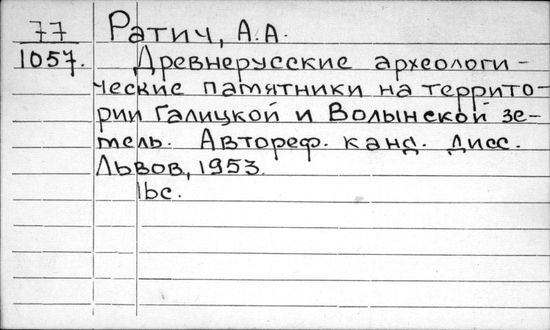 77 Ратич, А.А.
1057. Древнерусские археологи-
ческие памятники на террито-
рии Галицкой и Волынской зе-
мель. Автореф. канд. дисс.
Львов, 1953.
16с.